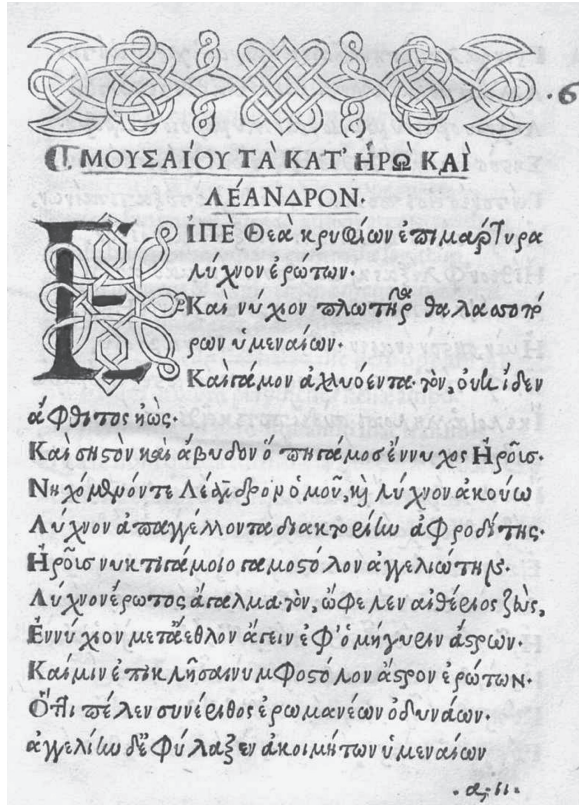 ·6
ΜΟΥΣΑΙΟΥ ΤᾺ ΚΑΤ' ἩΡῺ ΚΑῚ
ΛΈΑΝΔΡΟΝ.
ΕἸΠῈ Θεὰ κρυφίων ἐπιμάρτυρα
λύχνον ἐρώτων.
Καὶ νύχιον πλωτῆρα θαλασσοπό
ρων ὑμεναίων.
Καὶ γάμον ἀχλυόεντα. τὸν, οὐκ ἴδεν
ἄφθιτος ἠώς.
Καὶ σηστὸν καὶ ἄβυδον ὅπη γάμος ἔννυχος Ἡροῦς.
Νηχόμενόν τε Λέανδρον ὁμοῦ, καὶ λύχνον ἀκούω
Λύχνον ἀπαγγέλλοντα διακτορίην ἀφροδίτης.
Ἡροῦς νυκτιγάμοιο γαμοστόλον ἀγγελιώτην.
Λύχνον ἔρωτος ἄγαλμα. τὸν, ὤφελεν αἰθέριος ζεὺς,
Ἐννύχιον μετ' ἄεθλον ἄγειν ἐφ' ὁμήγυριν ἄστρων.
Καί μιν ἐπικλῆσαι νυμφοστόλον ἄστρον ἐρώτων.
Ὅττι πέλεν συνέριθος ἐρωμανέων ὀδυνάων.
ἀγγελίην δ' ἐφύλαξεν ἀκοιμήτων ὑμεναίων